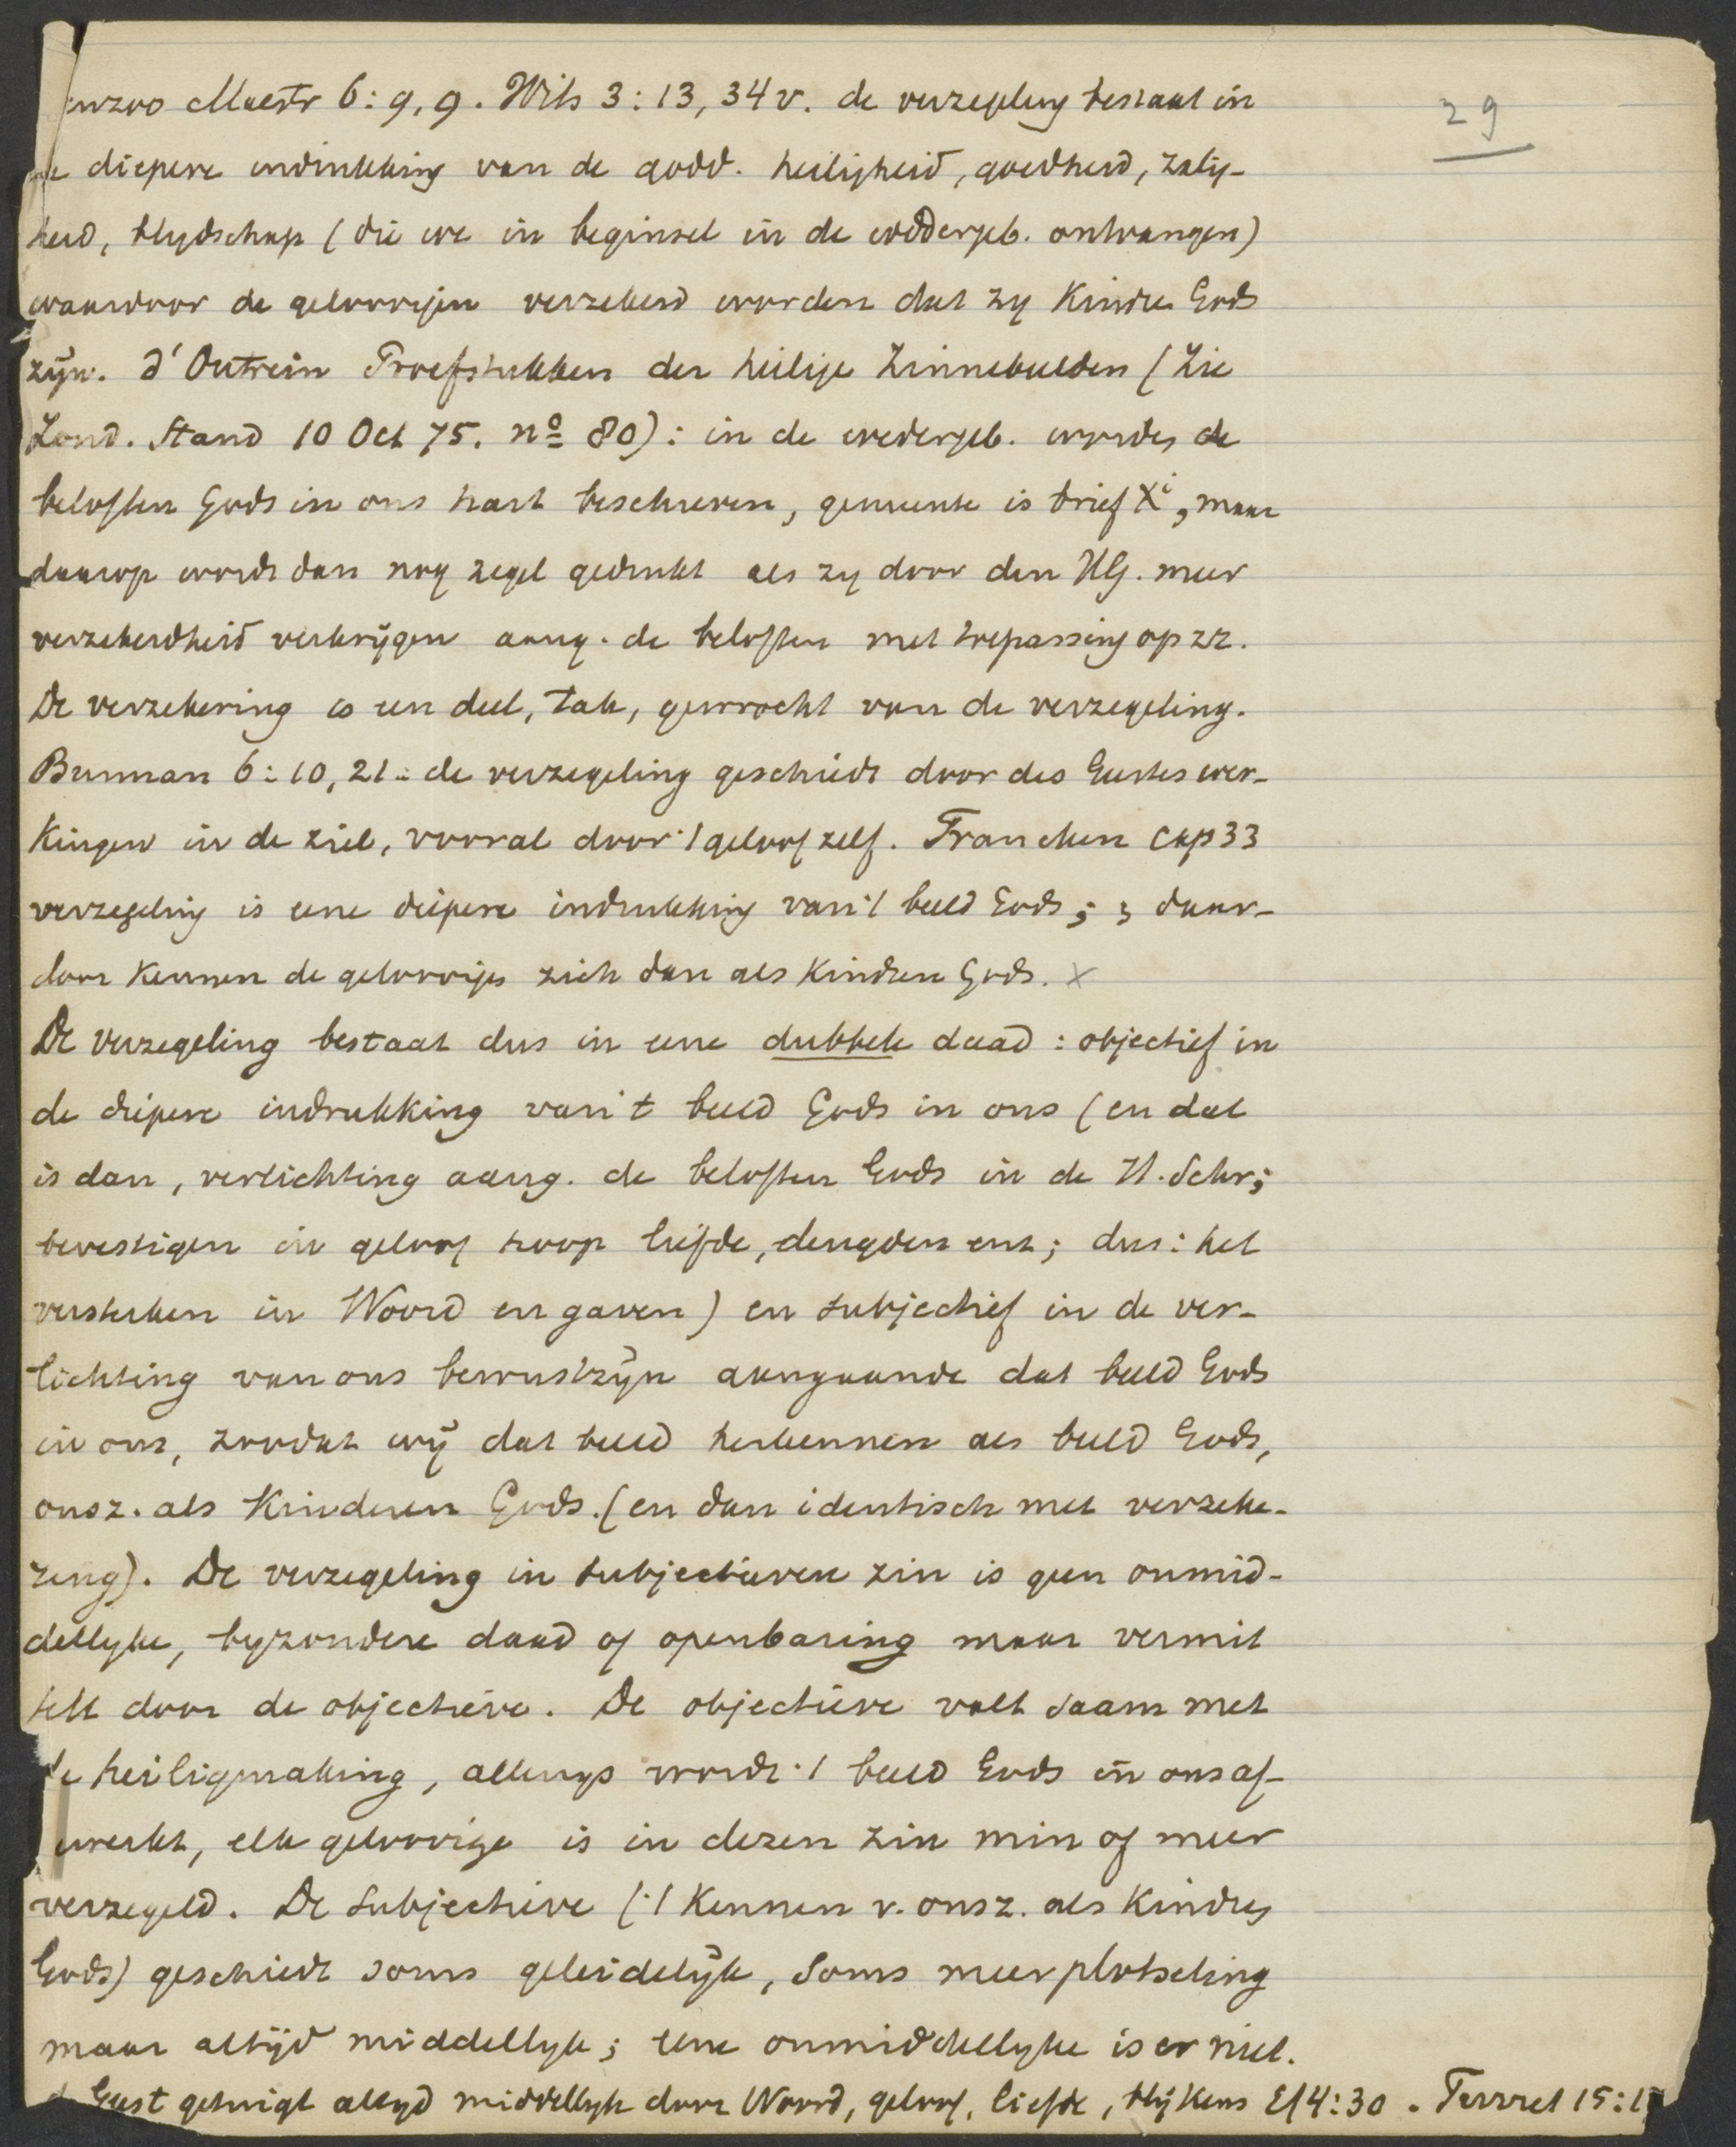 enzoo Maestr 6:9,9. Wits 3:13, 34 v. de verzegeling bestaat in
29
de diepere indrukking van de godd. heiligheid, goedheid, zalig-
heid, blydschap (die we in beginsel in de wedergeb. ontvangen)
waardoor de geloovigen verzekerd worden dat zy kindren Gods
zijn. d'Outrein Proefstukken der heilige Zinnebeelden (Zie
Zond. Stand 10 Oct 75. no 80): in de wedergeb. worden de
beloften Gods in ons hart beschreven, gemeente is brief Xi, maar
daarop wordt dan nog zegel gedrukt als zy door den HG. meer
verzekerdheid verkrijgen aang. de beloften met toepassing op zz.
De verzekering is een deel, tak, gewrocht van de verzegeling.
Burman 6:10,21: de verzegeling geschiedt door des Geestes wer-
kingen in de ziel, vooral door 't geloof zelf. Francken cap 33
verzegeling is eene diepere indrukking van 't beeld Gods; daar-
door kennen de geloovigen zich dan als kindren Gods. x
De verzegeling bestaat dus in eene dubbele daad: objectief in
de diepere indrukking van 't beeld Gods in ons (en dat
is dan, verlichting aang. de beloften Gods in de H. Schr;
bevestigen in geloof hoop liefde, deugden enz; dus: het
versterken in Woord en gaven) en subjectief in de ver-
lichting van ons bewustzijn aangaande dat beeld Gods
in ons, zoodat wij dat beeld herkennen als beeld Gods,
onsz. als kinderen Gods. (en dan identisch met verzeke-
ring). De verzegeling in subjectieven zin is geen onmid-
dellyke, byzondere daad of openbaring maar vermit
telt door de objectieve. De objectieve valt saam met
de heiligmaking, allengs wordt 't beeld Gods in ons af-
gewerkt, elk geloovige is in dezen zin min of meer
verzegeld. De subjectieve ('t kennen v. onsz. als kindren
Gods) geschiedt soms geleidelijk, soms meer plotseling
maar altijd middellyk; eene onmiddellyke is er niet.
de Geest getuigt altyd middellyk door Woord, geloof, liefde, blijkens Ef 4:30. Turret 15:17